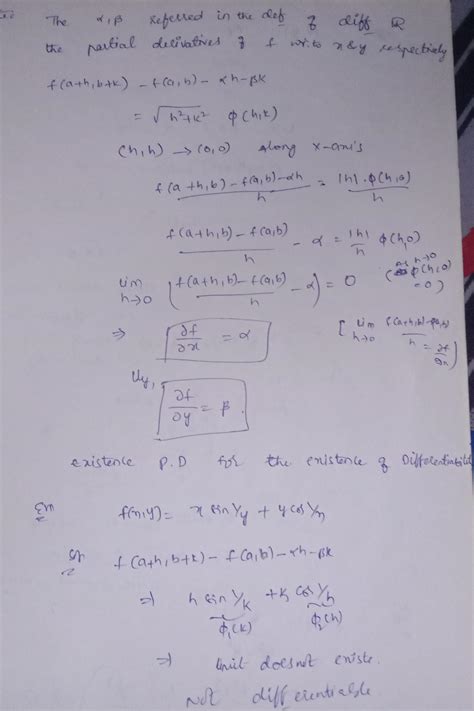 The α, β referred in the def of diff
the partial derivatives of f w.r.to x & y respectively
f(a+h, b+k) - f(a,b) - αh - βk
= √h²+k² φ(h,k)
(h,h) → (0,0) along x-axis
f(a+h,b) - f(a,b) - αh / h = |h|·φ(h,0) / h
f(a+h,b) - f(a,b) / h - α = |h| / h φ(h,0)
lim h→0 ( f(a+h,b) - f(a,b) / h - α ) = 0 ( as h→0 φ(h,0) = 0 )
⇒ ∂f/∂x = α [ lim h→0 f(a+h,b) - f(a,b) / h = ∂f/∂x ]
lly,
∂f/∂y = β.
existence P.D for the existence of Differentiabili
Ex f(x,y) = x sin 1/y + y cos 1/x
f(a+h, b+k) - f(a,b) - αh - βk
⇒ h sin 1/k + k cos 1/h
φ₁(k) φ₂(h)
⇒ limit doesnot existe.
Not differentiable